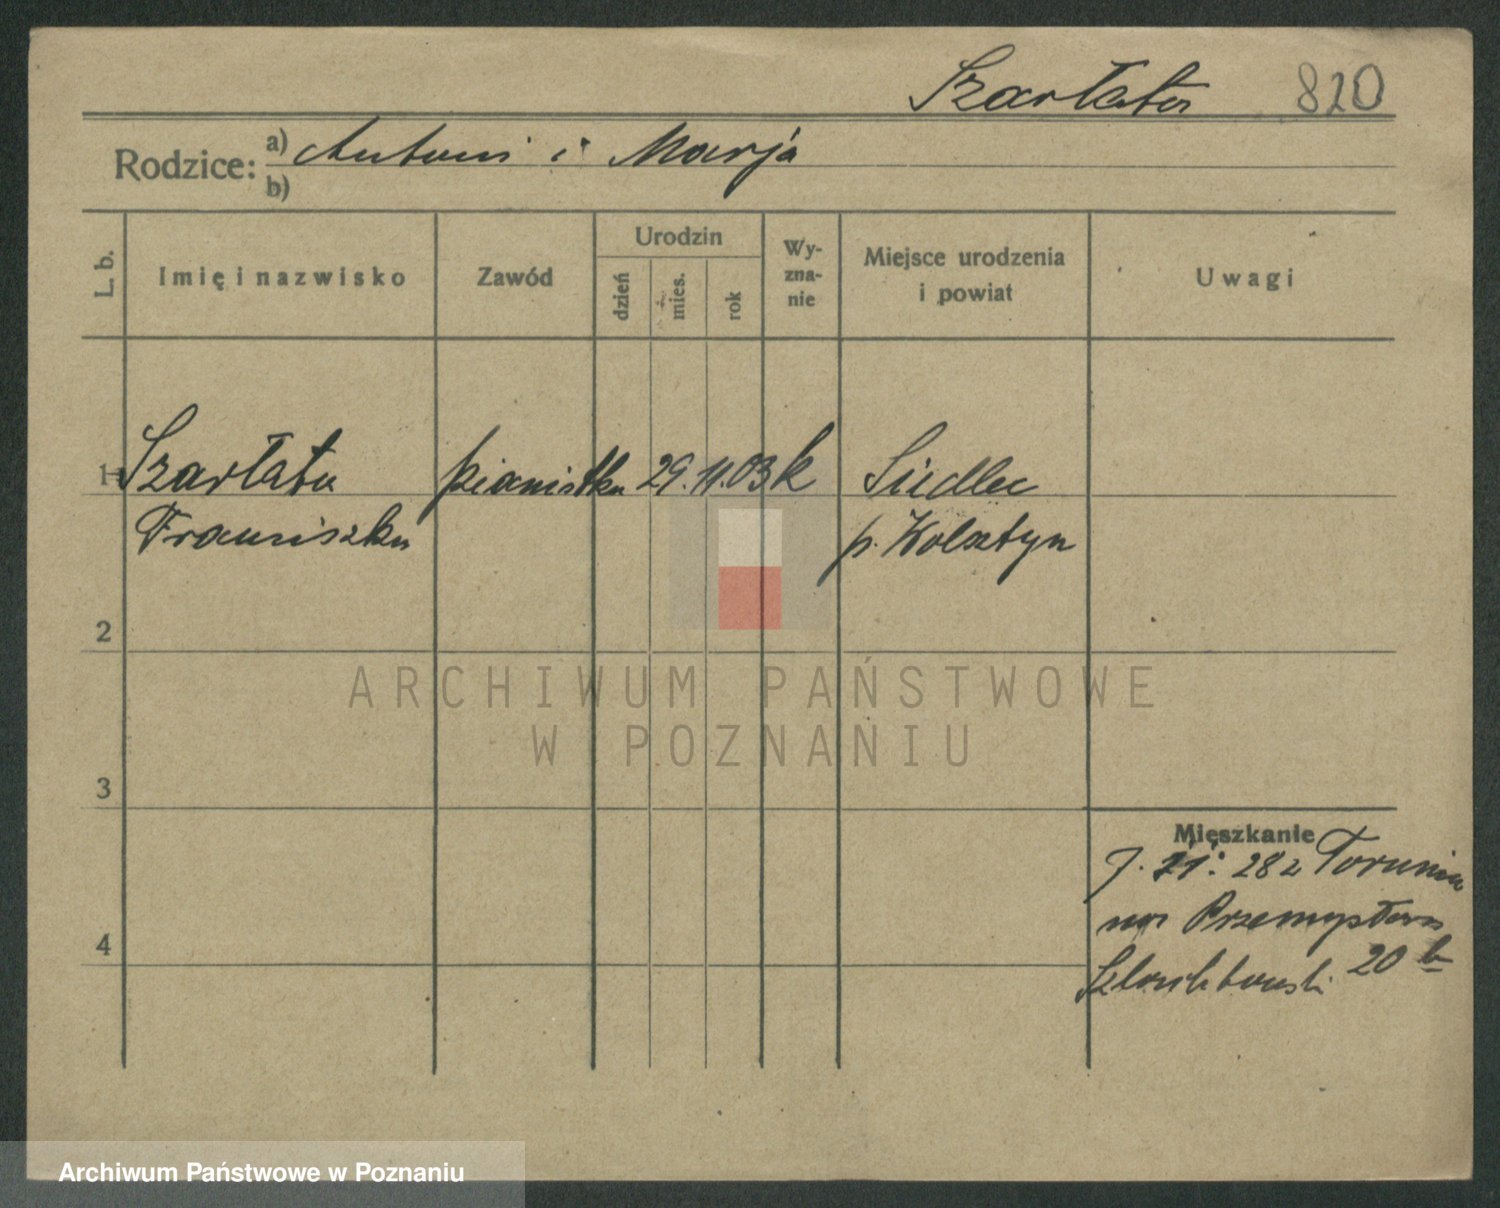 Szarłata 820
Rodzice: a) Antoni i Marja
b)
L. b.
Imię i nazwisko
Zawód
Urodzin
dzień
mies.
rok
Wy-
zna-
nie
Miejsce urodzenia
i powiat
Uwagi
1 Szarłata pianistka 29. 11. 03 k Siedlec
Franciszka p. Wolsztyn
2
ARCHIWUM PAŃSTWOWE
W POZNANIU
3
Mieszkanie
282 Torunia
na Przemysłowa
20 b
4
Archiwum Państwowe w Poznaniu